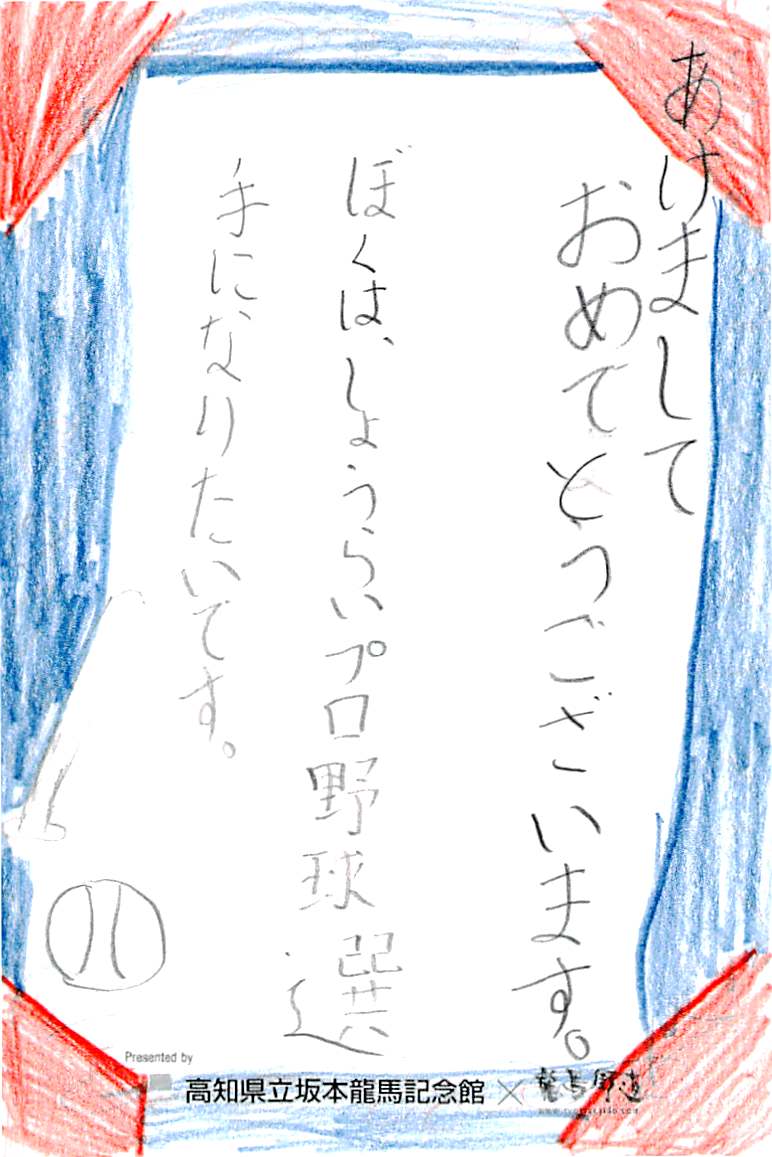 あけまして
おめでとうございます。
ぼくは、しょうらいプロ野球選
手になりたいです。
Presented by
高知県立坂本龍馬記念館×龍馬街道